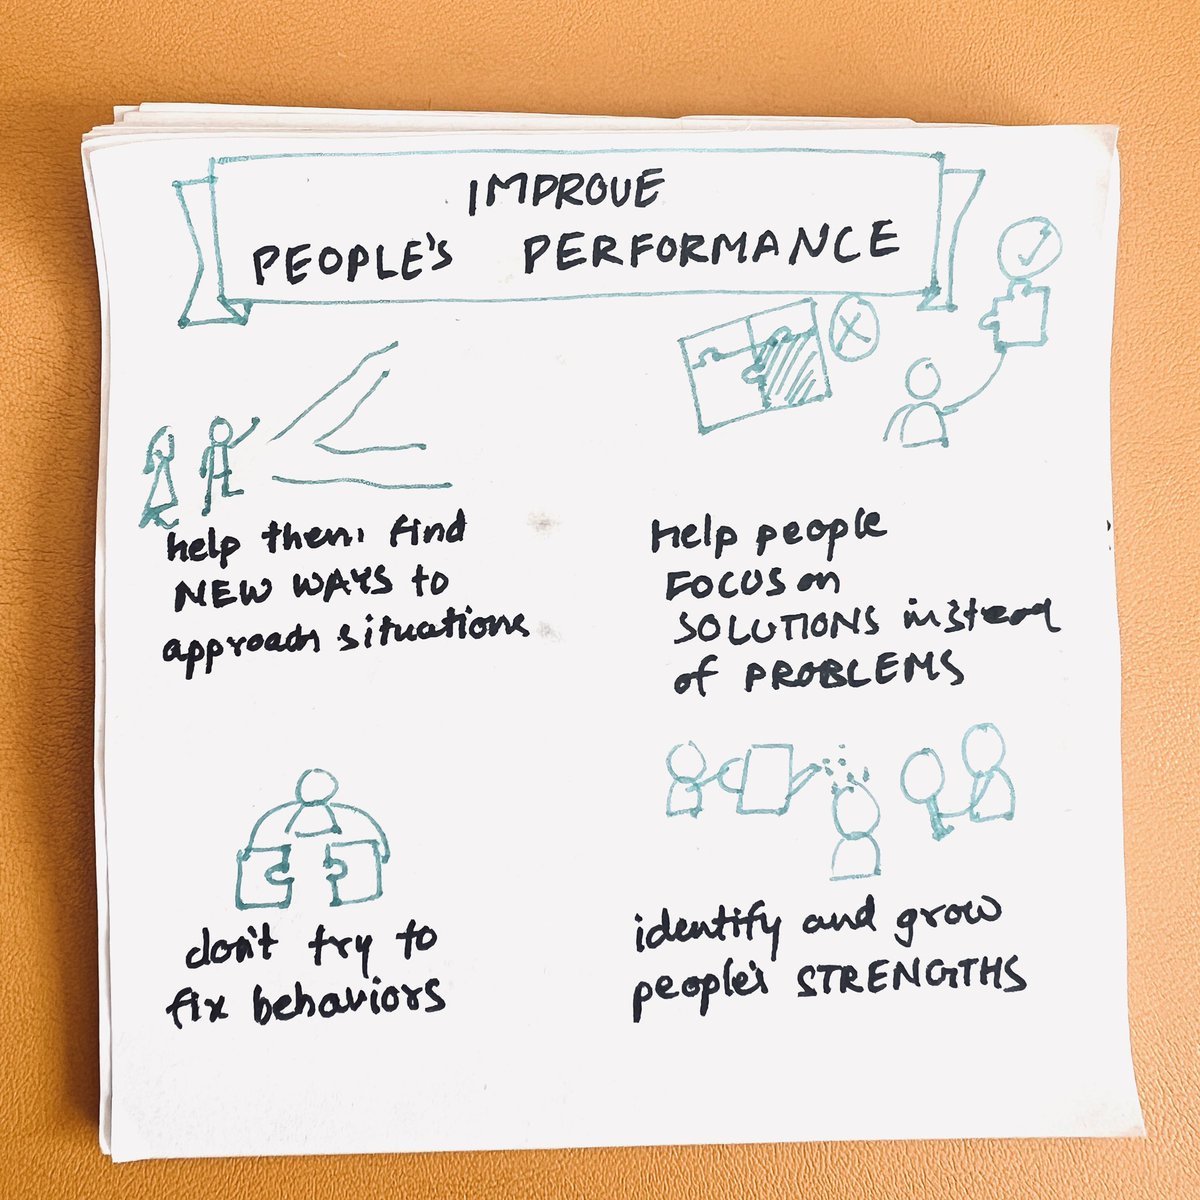 IMPROVE
PEOPLE'S PERFORMANCE
help them find
NEW WAYS to
approach situations
Help people
FOCUS on
SOLUTIONS instead
of PROBLEMS
don't try to
fix behaviors
identify and grow
people's STRENGTHS